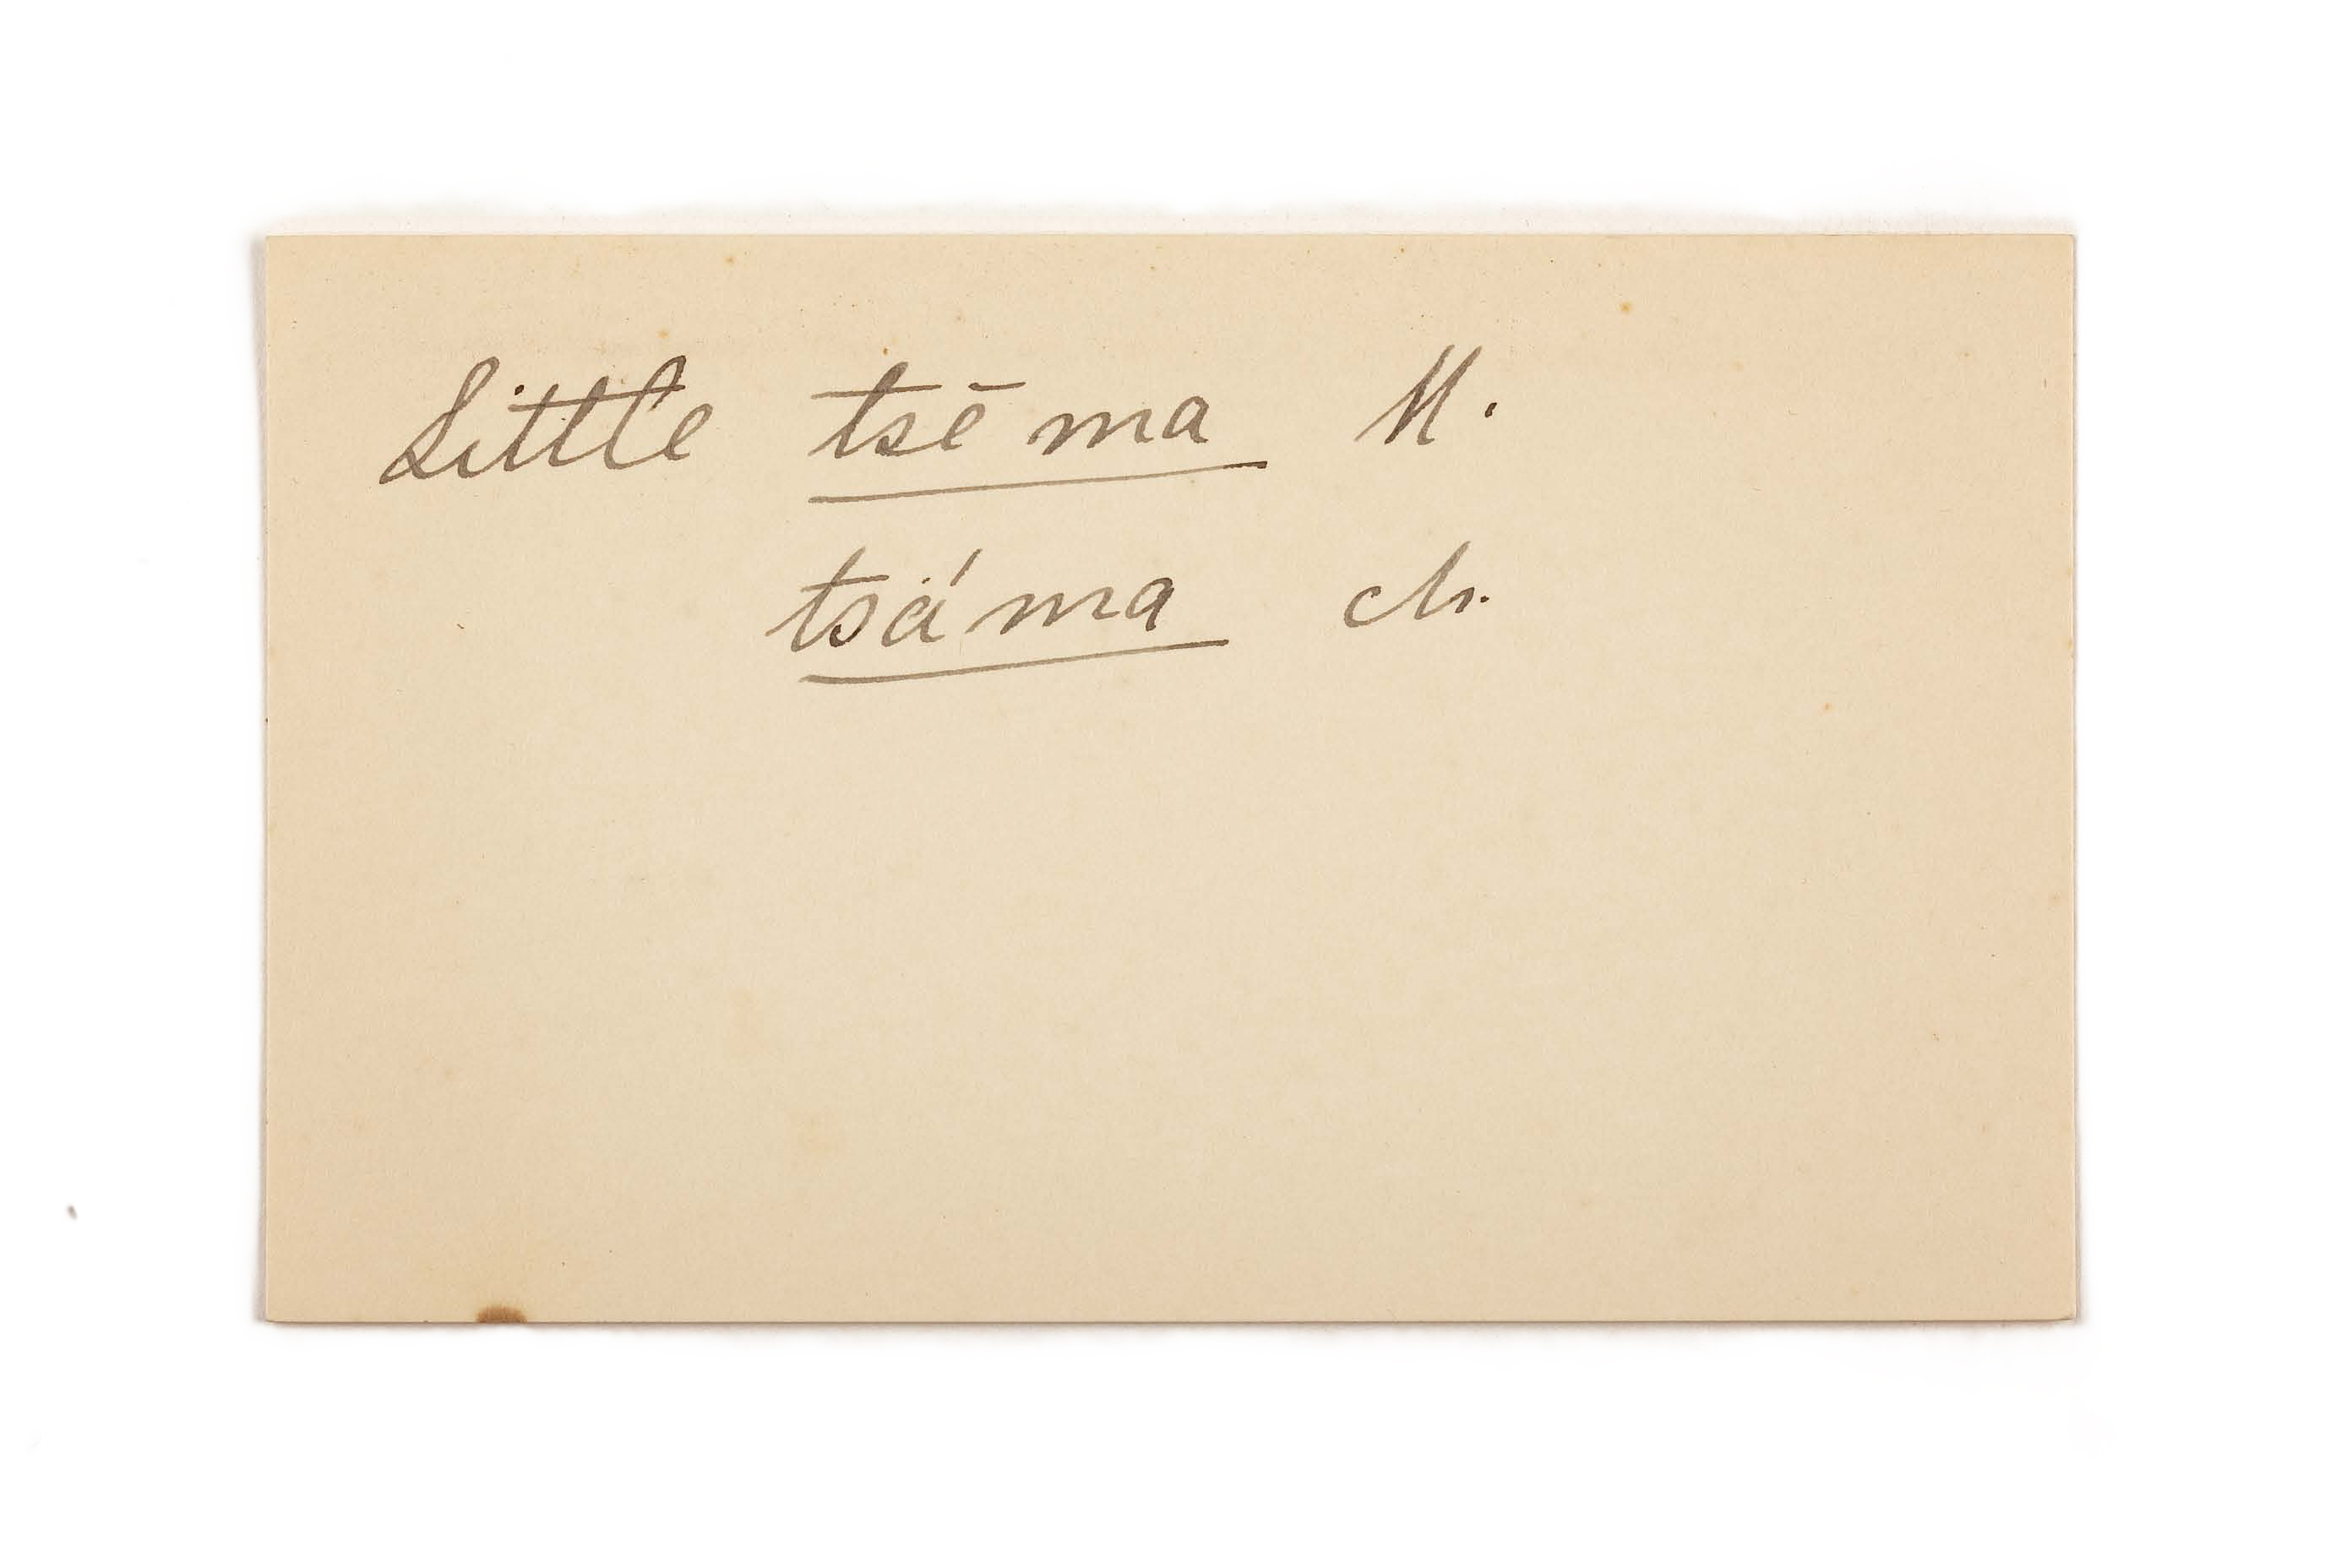 Little tsē ma M.
tsä́ ma ch.